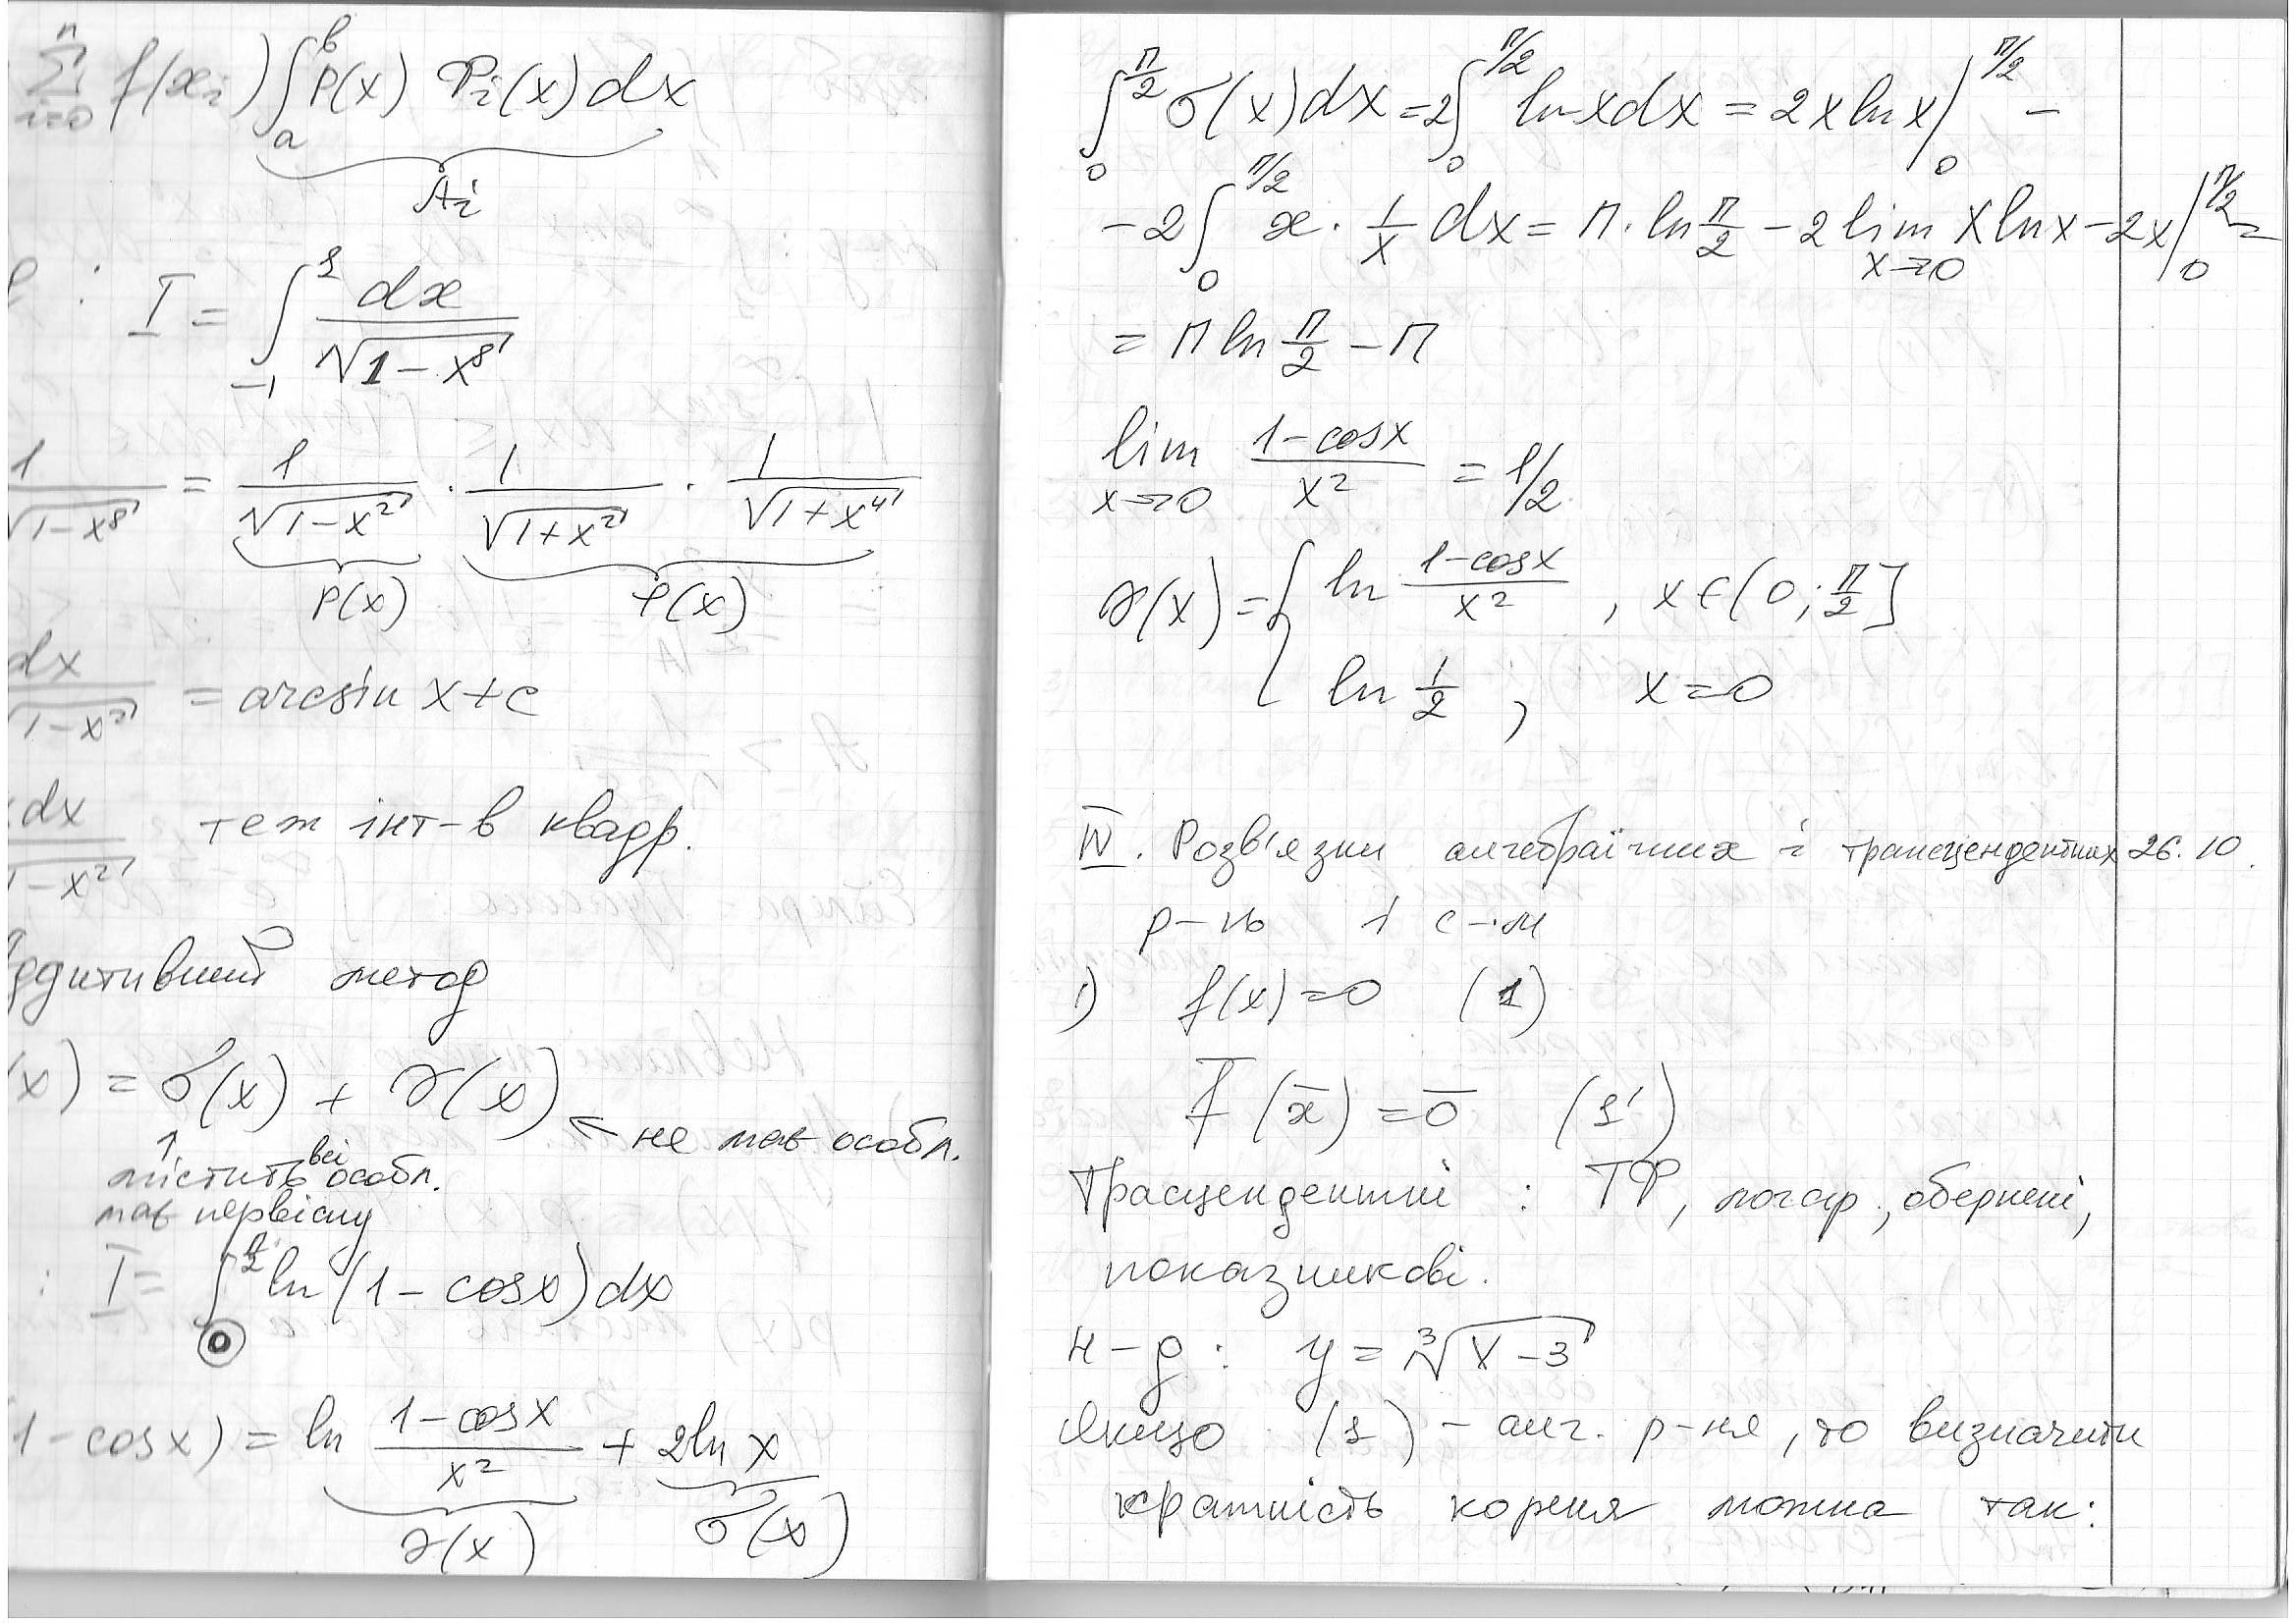 n
∑ f(xᵢ) ∫ₐᵇ p(x) Φᵢ(x) dx
i=0
Aᵢ
: I = ∫₋₁¹ dx / √(1-x⁸)
1/√(1-x⁸) = 1/√(1-x²) · 1/√(1+x²) · 1/√(1+x⁴)
p(x) f(x)
dx/√(1-x²) = arcsin x + c
dx/√(1-x²) теж інт-в квадр.
аддитивний метод
(x) = σ(x) + γ(x) ← не має особл.
↑
містить всі особл.
має первісну
: I = ∫₀^(π/2) ln(1-cosx)dx
1-cosx) = ln (1-cosx)/x² + 2ln x
γ(x) σ(x)
∫₀^(π/2) σ(x)dx = 2∫₀^(π/2) ln x dx = 2x ln x |₀^(π/2) -
-2∫₀^(π/2) x · 1/x dx = π · ln π/2 - 2 lim x→0 x ln x - 2x |₀^(π/2) =
= π ln π/2 - π
lim x→0 (1-cosx)/x² = 1/2
γ(x) = { ln (1-cosx)/x² , x ∈ (0; π/2]
ln 1/2 , x = 0
IV. Розв'язки алгебраїчних і трансцендентних 26.10.
р-нь і с-м
1) f(x) = 0 (1)
F̄(x̄) = 0̄ (1')
Трасцендентні : ТФ, логар., обернені,
показникові.
н-д: y = ∛(x-3)
Якщо (1) - алг. р-ня, то визначити
кратність кореня можна так: